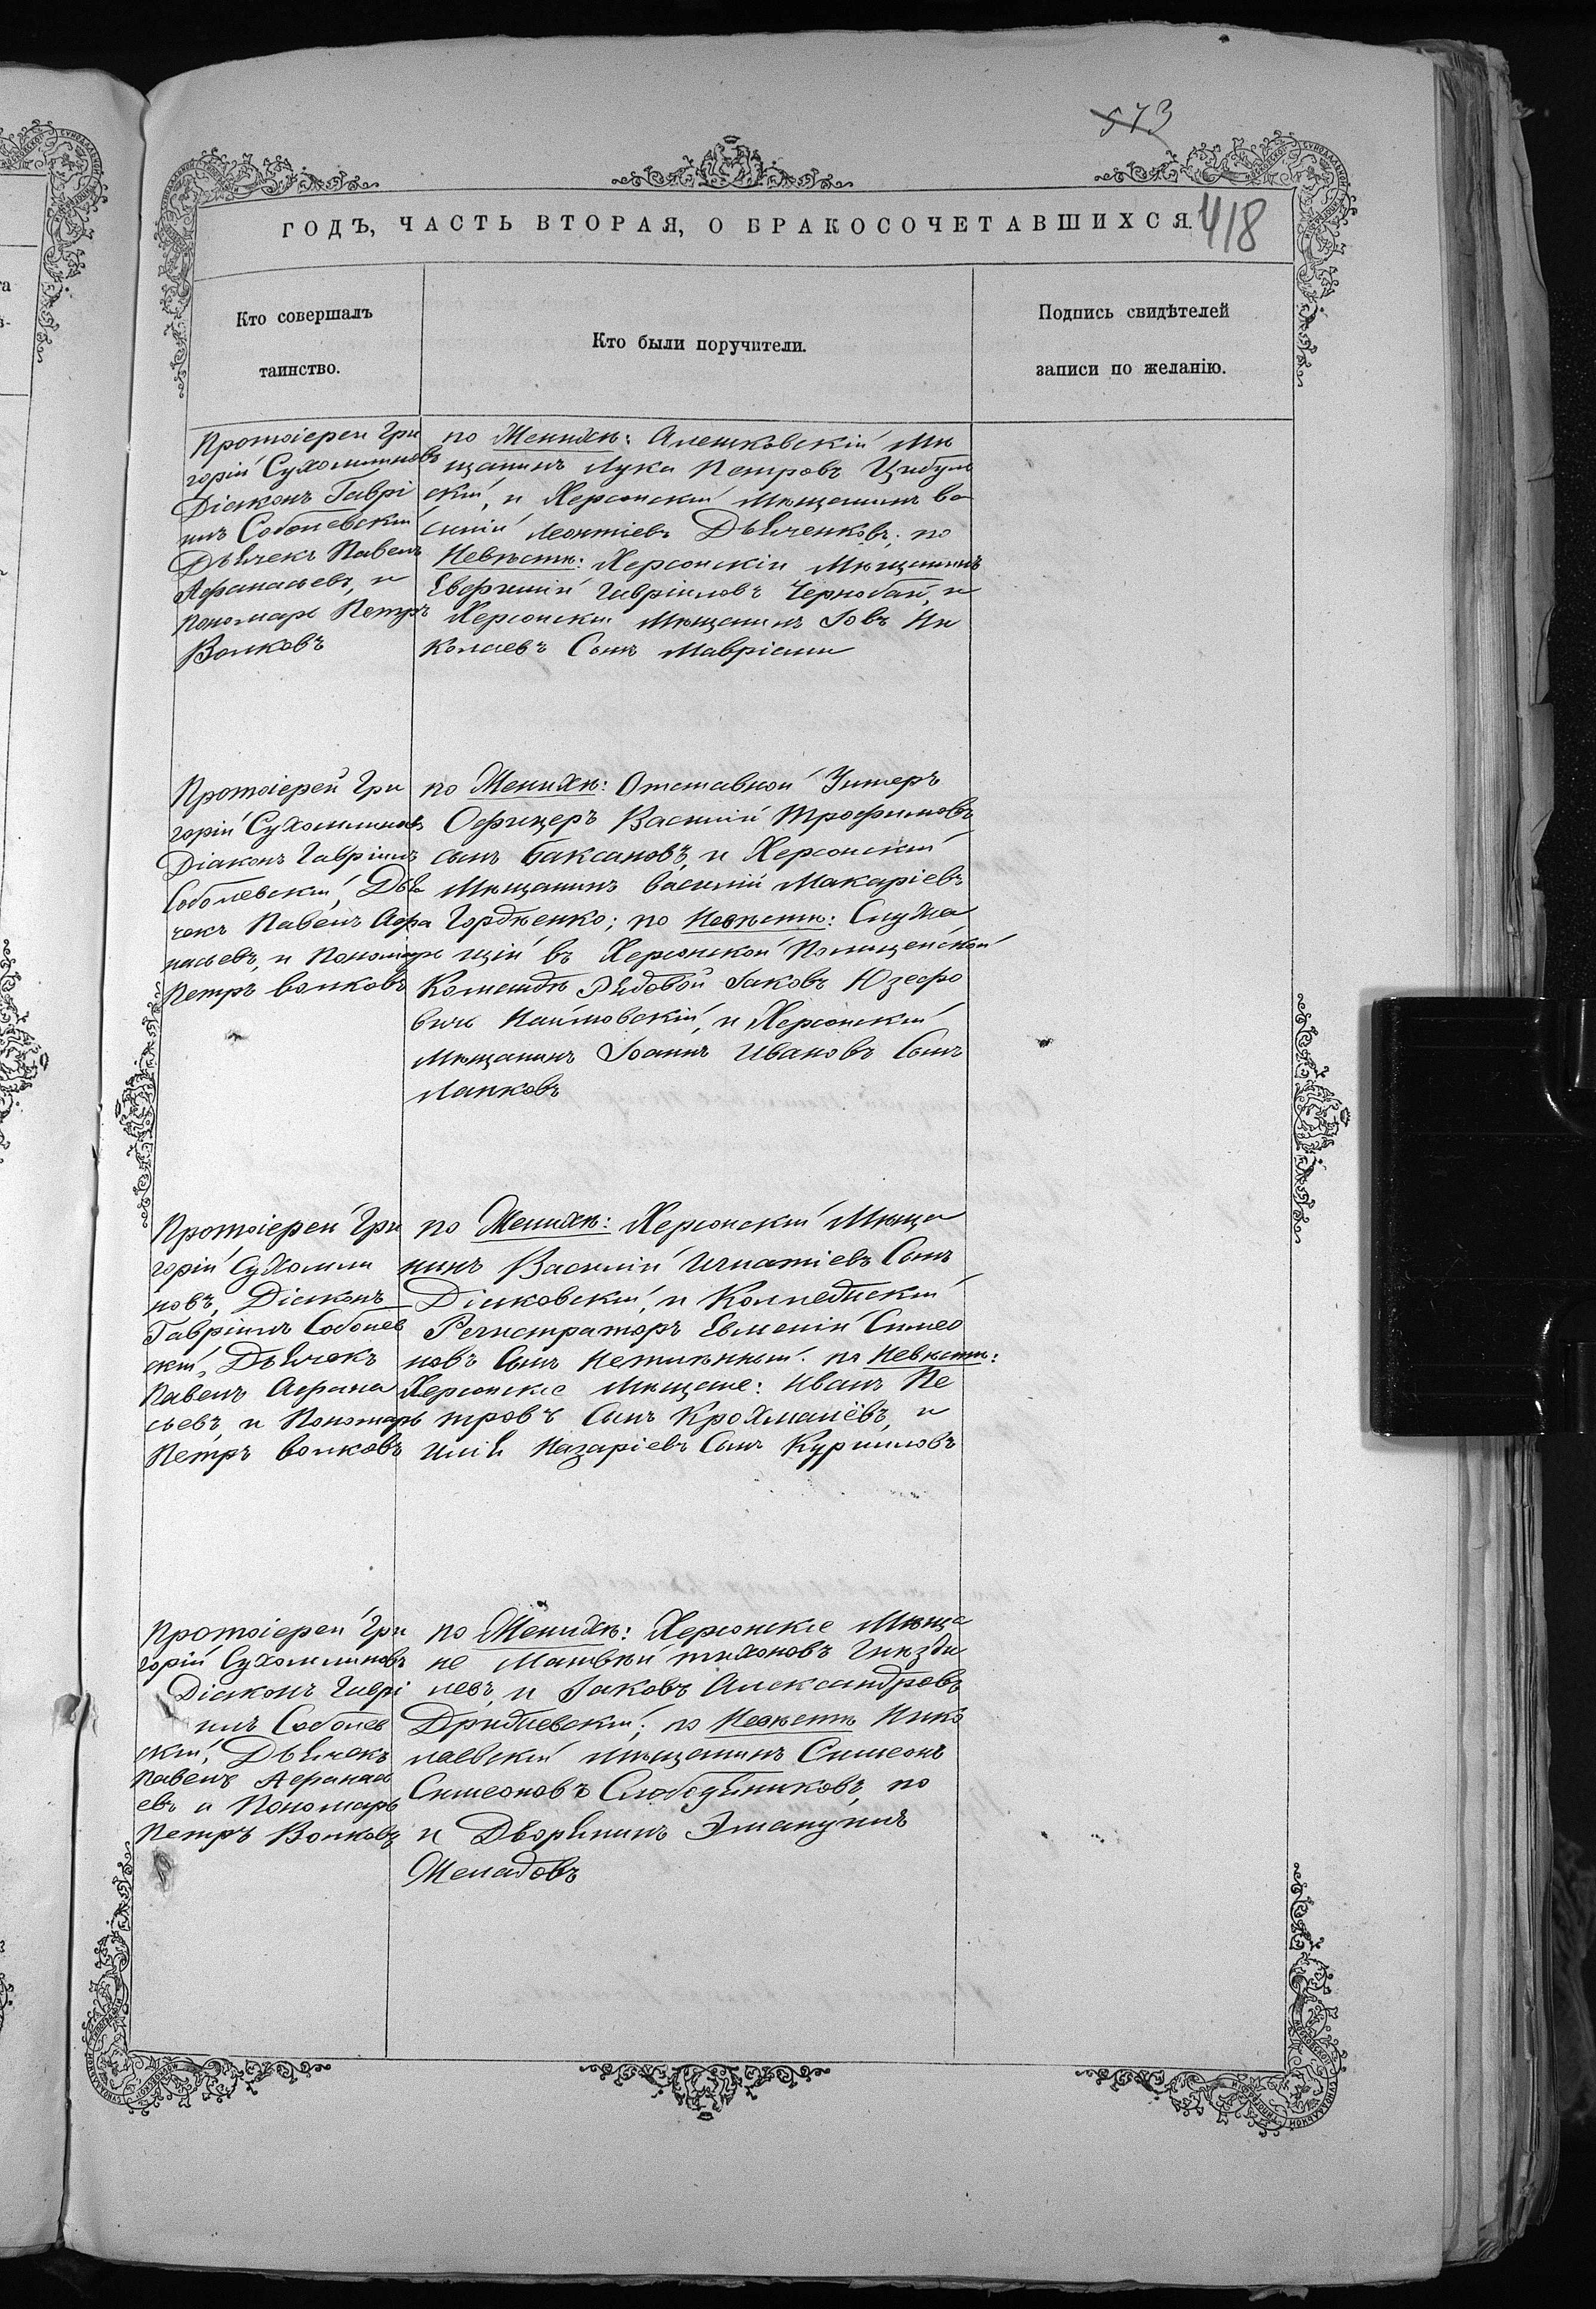 573
ГОДЪ, ЧАСТЬ ВТОРАЯ, О БРАКОСОЧЕТАВШИХСЯ.
418
Кто совершалъ
таинство.
Кто были поручители.
Подпись свидѣтелей
записи по желанію.
Протоіерей Гри
горій Сухомлиновъ
Діаконъ Гаврі
илъ Соболевскій
Дьячекъ Павелъ
Афанасьевъ, и
пономарь Петръ
Волковъ
по Женихѣ: Алешковскій Мѣ
щанинъ Лука Петровъ Цибуль
скій, и Херсонскій мѣщанинъ Ва
силій Леонтіевъ Дьяченковъ; по
Невѣстѣ: Херсонскій Мѣщанинъ
Евфимій Гавріиловъ Чернобай, и
Херсонскій Мѣщанинъ Іовъ Ни
колаевъ Сынъ
Протоіерей Гри
горій Сухомлиновъ
Діаконъ Гавріилъ
Соболевскій, Дья
чекъ Павелъ Афа
насьевъ, и Пономарь
Петръ Волковъ
по Женихѣ: Отставной Унтеръ
Офицеръ Василій Трофимовъ
сынъ Баксановъ, и Херсонскій
Мѣщанинъ Василій Макаріевъ
Гордѣенко; по Невѣстѣ: Служа
щій въ Херсонской Полицейской
Командѣ Рядовой Іаковъ Юзефо
вичъ и Херсонскій
Мѣщанинъ Іоаннъ Ивановъ Сынъ
Лапковъ
Протоіерей Гри
горій Сухомли
новъ, Діаконъ
Гавріилъ Соболев
скій, Дьячекъ
Павелъ Афана
сьевъ, и Пономарь
Петръ Волковъ
по Женихѣ: Херсонскій Мѣща
нинъ Василій Игнатіевъ Сынъ
Діаковскій, и Коллежскій
Регистраторъ Евменій Симео
новъ Сынъ по Невѣстѣ:
Херсонскіе Мѣщане: Иванъ Пе
тровъ Сынъ Крохмалёвъ, и
Илія Назаріевъ Сынъ Куриловъ
Протоіерей Гри
горій Сухомлиновъ
Діаконъ Гаврі
илъ Соболев
скій, Дьячекъ
Павелъ Афанась
евъ и Пономарь
Петръ Волковъ
по Женихѣ: Херсонскіе Мѣща
не Матвѣй Тихоновъ Гнѣзди
левъ, и Іаковъ Александровъ
по Невѣстѣ Нико
лаевскій мѣщанинъ Симеонъ
Симеоновъ Слободяниковъ, по
и Дворянинъ Эмануилъ